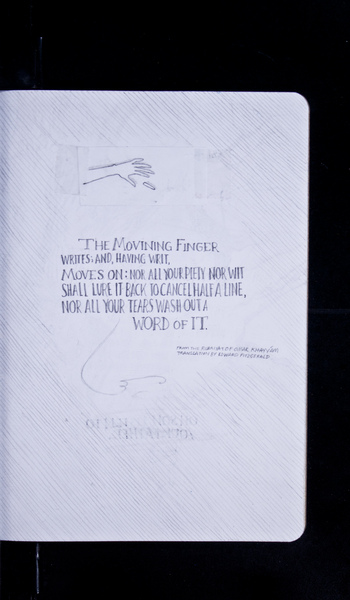 THE MOVINING FINGER
WRITES; AND, HAVING WRIT,
MOVES ON: NOR ALL YOUR PIETY NOR WIT
SHALL LURE IT BACK TO CANCEL HALF A LINE,
NOR ALL YOUR TEARS WASH OUT A
WORD OF IT.
FROM THE RUBAIYAT OF OMAR KHAYYAM
TRANSLATION BY EDWARD FITZGERALD